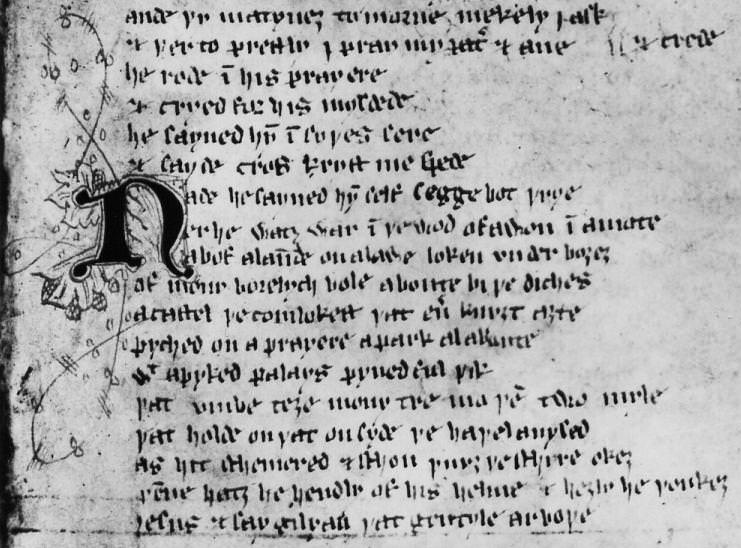 ande þy matyneȝ to morne mekely I ask
& þer to prestly I pray my pat̉ & aue & crede
he rode ī his prayere
& cryed for his mysdede
he sayned hȳ ī syþes sere
& sayde cros kryst me spede
Nade he sayned hȳ self segge bot þrye
er he watȝ war ī þe wod of a won ī a mote
abof a laūde on a lawe loken vnder boȝeȝ
of mony borelych bole aboute bi þe diches
a castel þe comlokest þat eū knyȝt aȝte
pyched on a prayere a park al aboute
wt a pyked palays pyned ful þik
þat vmbe teȝe mony tre mo þē two myle
þat holde on þat on syde þe haþel auysed
as hit schemered & schon þurȝ þe schyre okeȝ
þēne hatȝ he hendly of his helme & heȝly he þonkeȝ
iesus & say gilyan þat gentyle ar boþe